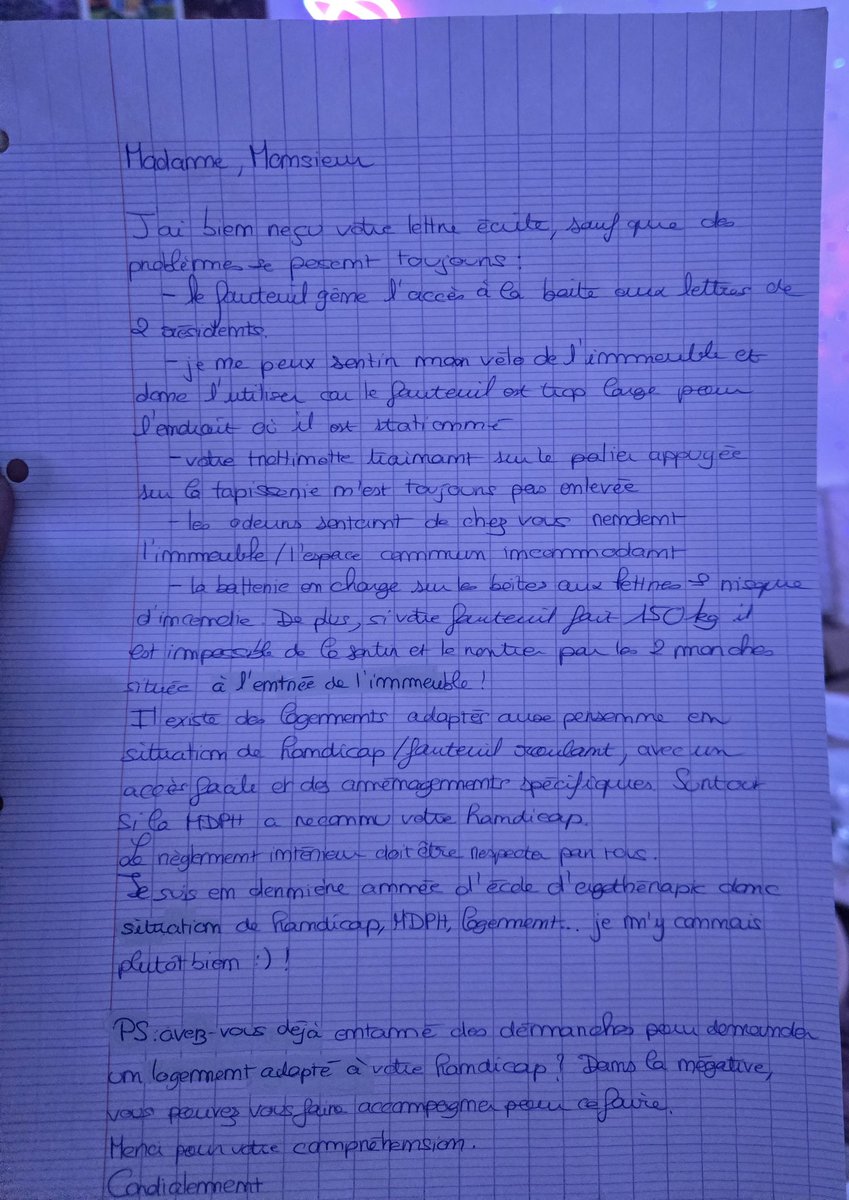 Madame, Monsieur
J'ai bien reçu votre lettre écrite, sauf que des
problèmes se posent toujours :
- le fauteuil gène l'accès à la boite aux lettres de
2 résidents.
- je ne peux sortir mon vélo de l'immeuble et
donc l'utiliser car le fauteuil est trop large pour
l'endroit où il est stationné
- votre trottinette trainant sur le palier appuyée
sur la tapisserie n'est toujours pas enlevée
- les odeurs sortant de chez vous rendent
l'immeuble / l'espace commun incommodant
- la batterie en charge sur les boites aux lettres → risque
d'incendie. De plus, si votre fauteuil fait 150 kg il
est impossible de le sortir et le rentrer par les 2 marches
située à l'entrée de l'immeuble !
Il existe des logements adaptés aux personne en
situation de handicap / fauteuil roulant, avec un
accès facile et des aménagements spécifiques. Surtout
si la MDPH a reconnu votre handicap.
Le règlement intérieur doit être respecté par tous.
Je suis en dernière année d'école d'ergothérapie donc
situation de handicap, MDPH, logement... je m'y connais
plutôt bien :) !
PS : avez-vous déjà entamé des démarches pour demander
un logement adapté à votre handicap ? Dans la négative,
vous pouvez vous faire accompagner pour ce faire.
Merci pour votre compréhension.
Cordialement